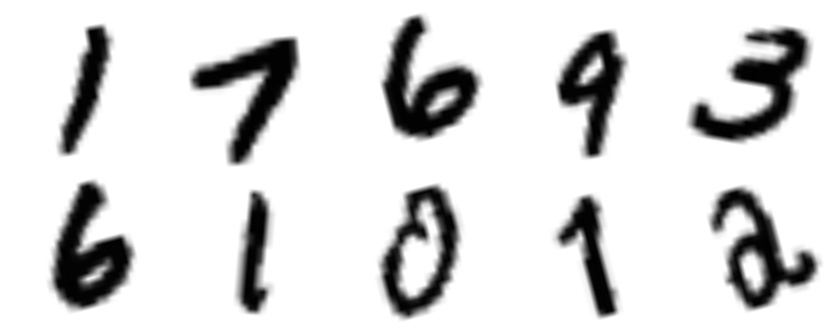 1 7 6 9 3
6 1 0 1 2